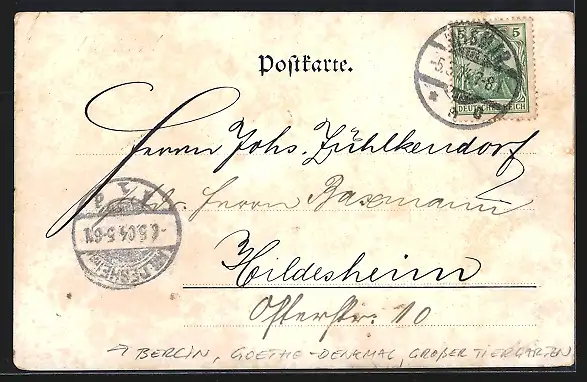 Postkarte.
5 5
DEUTSCHES REICH
Herrn Johs. Zühlkendorf
Herrn Baxmann
Hildesheim
Osterstr. 10
HILDESHEIM
-6.5.04.5-6N
→ BERLIN, GOETHE-DENKMAL, GROßER TIERGARTEN